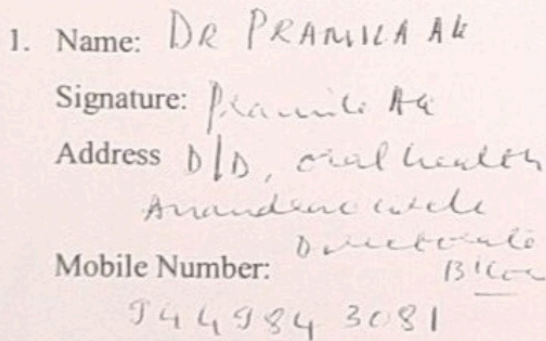 1. Name: DR PRAMILA AK
Signature: Pramila AK
Address D/D, oral health
Anandrao circle
Directorate
Mobile Number: B'lore
944984 3081